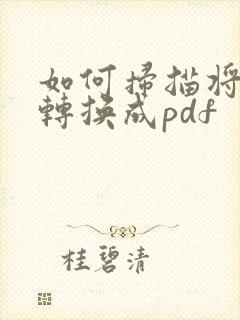 如何掃描將
轉換成pdf
桂碧清